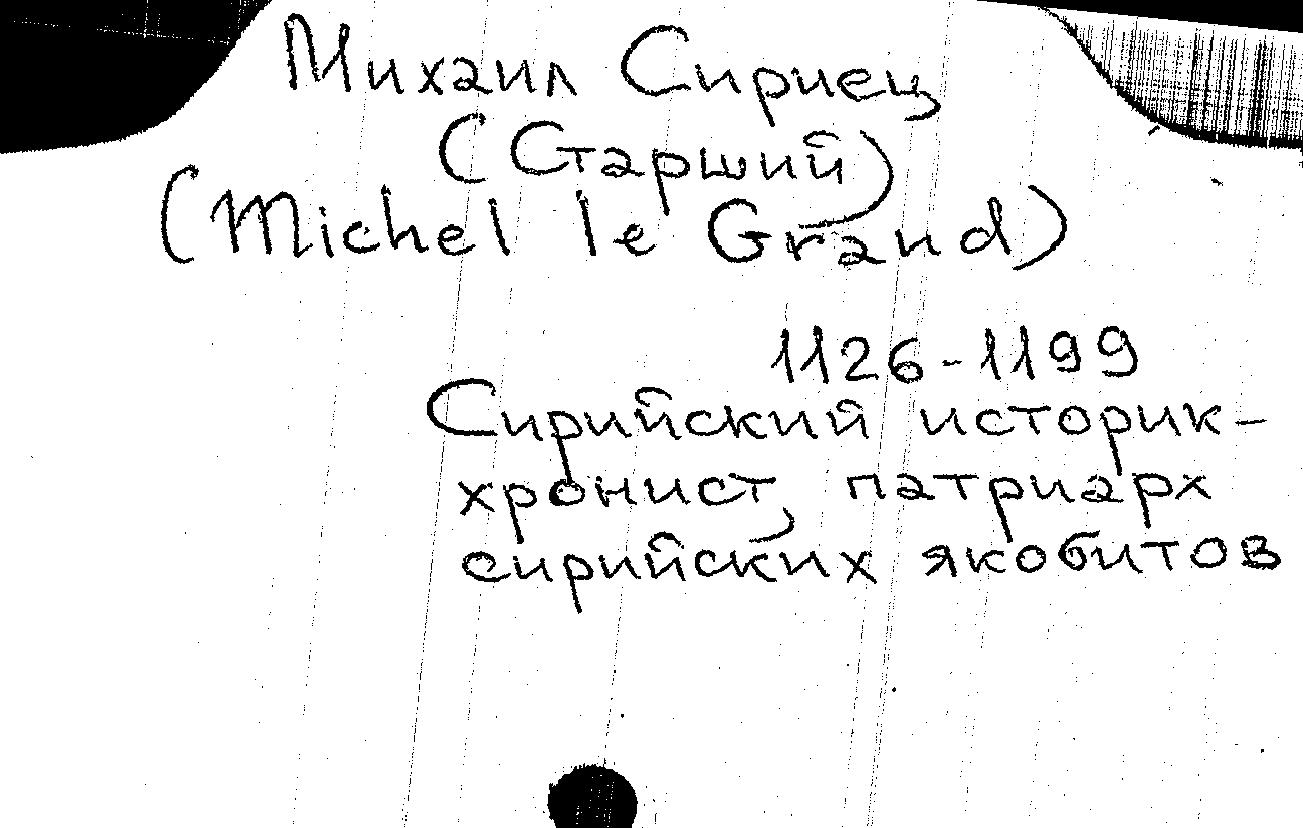 Михаил Сириец
(Старший)
(Michel le Grand)
1126-1199
Сирийский историк-
хронист, патриарх
сирийских якобитов